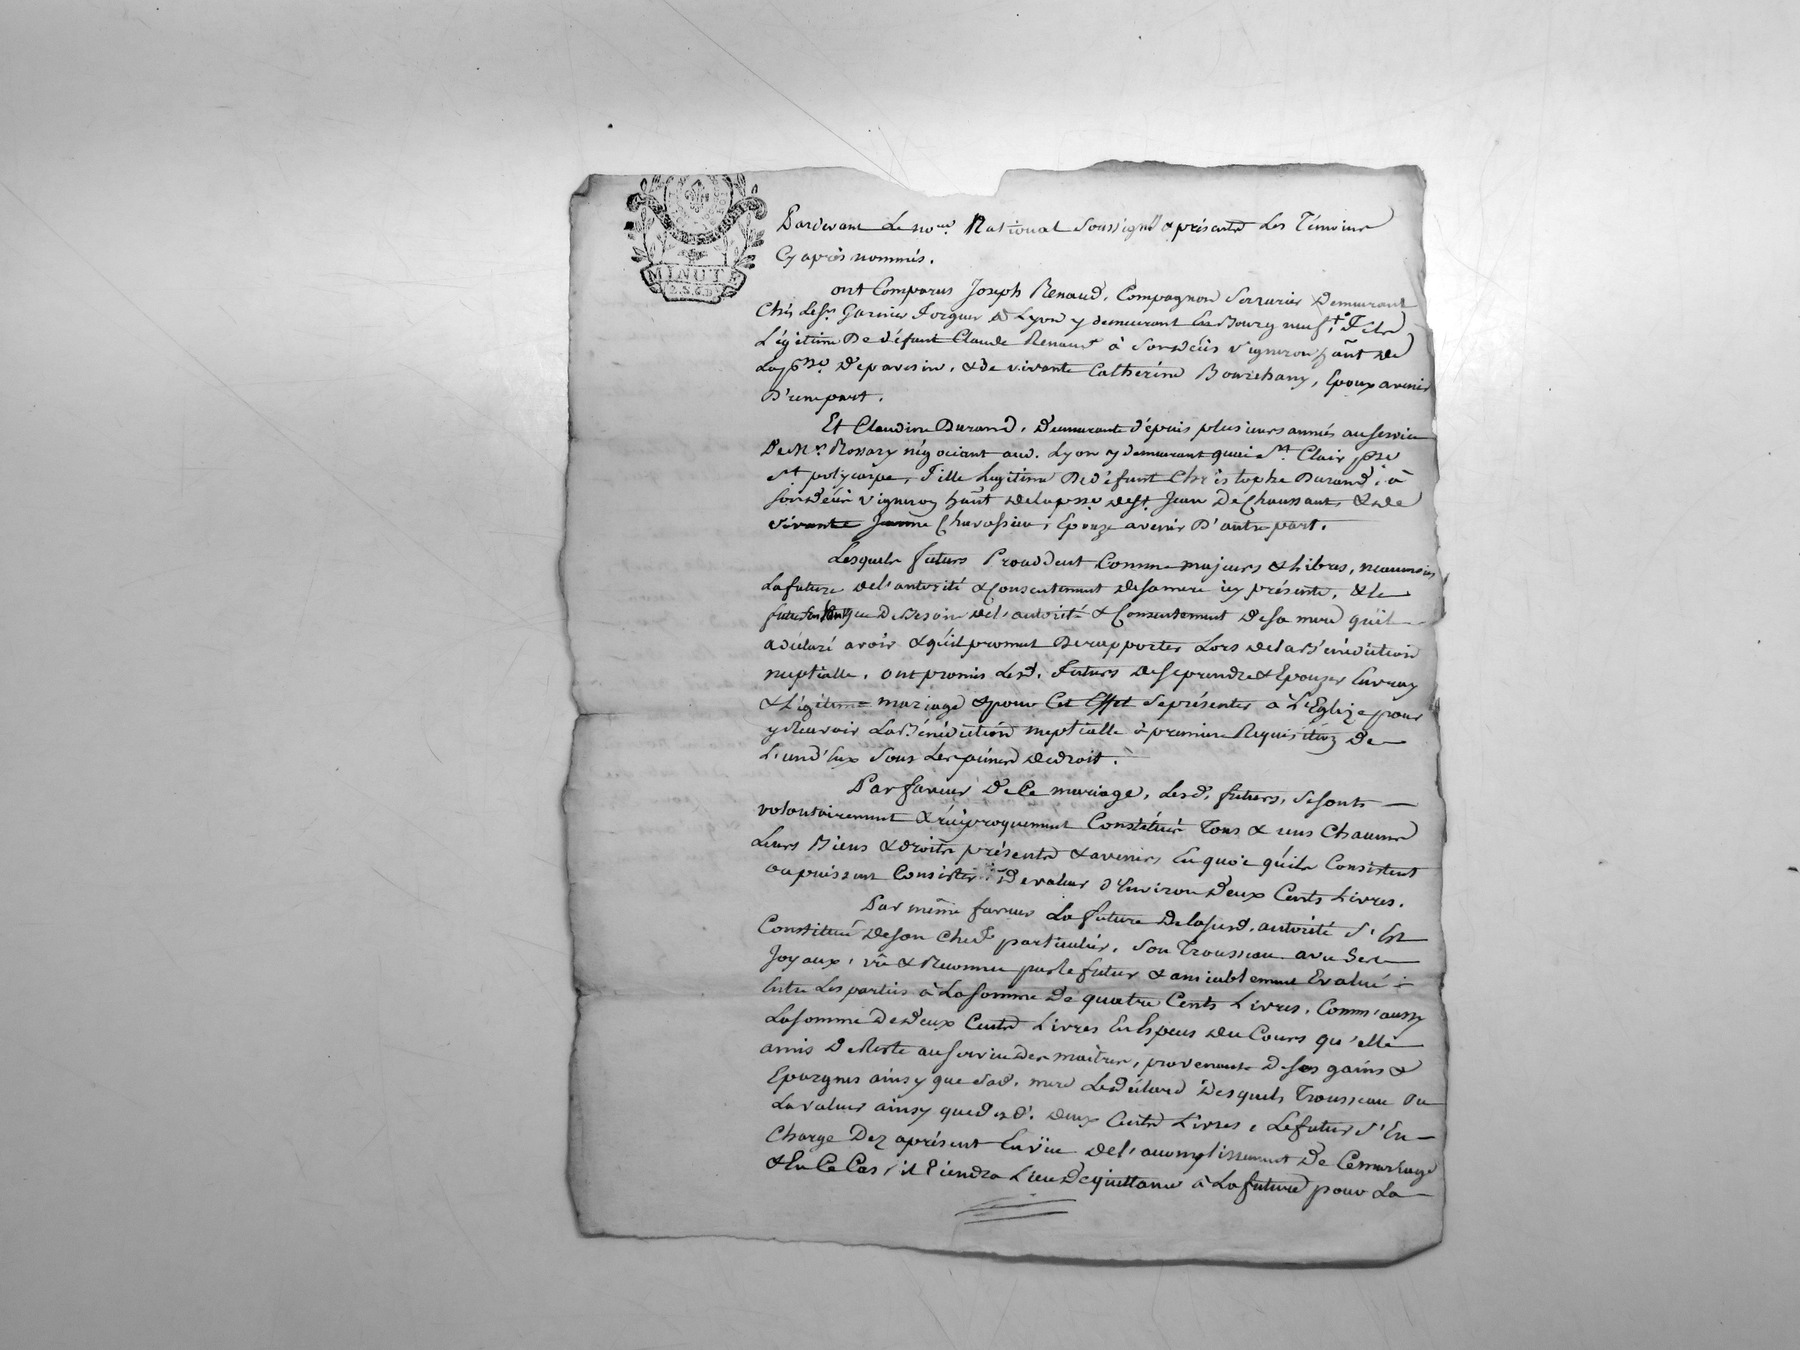 MINUTE
2. S. 6. D
Pardevant Le no.re National Soussigné & présents Les Témoins
Cy après nommés.
ont Comparus Joseph Renaud, Compagnon Serrurier Demeurant
Chés Le Sr. Garnier Forgeur à Lyon y demeurant En Bourg neuf, Fils
Légitime De défunt Claude Renaud à Son décès Vigneron hãnt De
La psse. D'eparesin, & de vivante Catherine Bourchany, Epoux avenir
D'une part.
Et Claudine Durand, Demeurante d'épuis plusieurs années au Service
De Mr. Rosary négociant aud. Lyon y demeurant quai St. Clair psse
St. polycarpe, Fille Legitime De défunt Christophe Durand, à
Son décès Vigneron hãnt De la psse. de St. Jean De Chaussant, & de
vivante Jeanne Chavassieu, Epouze avenir D'autre part.
Lesquels futurs Procèdent Comme majeurs & Libres, neanmoins
La future de l'autorité & Consentement De Sa mere icy présente, & le
futur que De Besoin de l'autorité & Consentement De Sa mere qu'il
a déclaré avoir & qu'il promet De rapporter Lors de la Bénédiction
nuptialle, ont promis Lesd. Futurs De Se prendre & Epouzer En vray
& Légitime mariage & pour Cet Effet Se présenter à L'Eglize pour
y Recevoir La Bénédiction nuptialle à premiere Requisition De
L'un d'Eux Sous Les peines De droit.
Par faveur De Ce mariage, Lesd. futurs, Se Sont
volontairement & réciproquement Constitués Tous & uns Chacuns
Leurs Biens & droits présents & avenirs En quoi qu'ils Consistent
ou puissent Consister De valeur d'Environ Deux Cents Livres.
Par même faveur La future De la Susd. autorité S'Est
Constitué De Son Chef particulier, Son Trousseau avec Ses
Joyaux, vû & Reconnu par le futur & amiablement Evalué
Entre Les parties à La Somme De quatre Cents Livres, Comm'aussy
La Somme De Deux Cents Livres En Especes Du Cours qu'elle
a mis De Reste au Service Des maitres, provenante De Ses gains &
Epargnes ainsy que Sad. mere Le déclare Desquels Trousseau ou
La valeur ainsy que desd. Deux Cents Livres, Le futur S'En
Charge Dez aprésent En vüe De l'accomplissement De Ce mariage
& En Ce Cas, il Tiendra Lieu De quittance à La future pour La